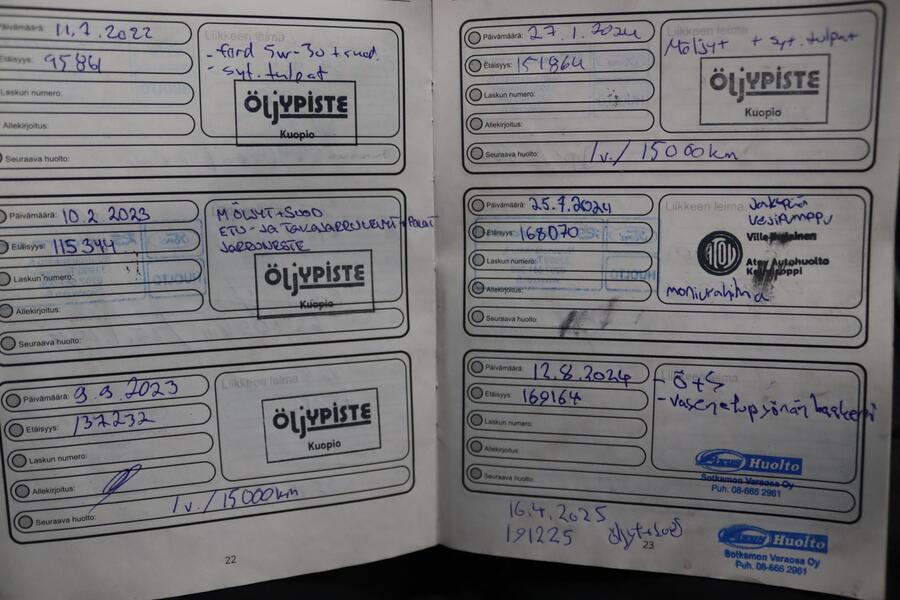 Päivämäärä: 11.7.2022
Etäisyys: 95861
Laskun numero:
Allekirjoitus:
Seuraava huolto:
Liikkeen leima
- ford 5w-30 + suod.
- syt. tulpat
ÖLJYPISTE
Kuopio
Päivämäärä: 10.2.2023
Etäisyys: 115344
Laskun numero:
Allekirjoitus:
Seuraava huolto:
MÖLJYT + SUOD
ETU- JA TAKAJARRULEVYT + PALAT
JARRUNESTE
ÖLJYPISTE
Kuopio
Päivämäärä: 9.9.2023
Etäisyys: 137232
Laskun numero:
Allekirjoitus:
Seuraava huolto: 1v./15000km
Liikkeen leima
ÖLJYPISTE
Kuopio
22
Päivämäärä: 27.1.2024
Etäisyys: 151864
Laskun numero:
Allekirjoitus:
Seuraava huolto: 1v./15000km
Liikkeen leima
Möljyt + syt. tulpat
ÖLJYPISTE
Kuopio
Päivämäärä: 25.7.2024
Etäisyys: 168070
Laskun numero:
Allekirjoitus:
Seuraava huolto:
Liikkeen leima
Jakopää
vesipumppu
Ville
Atoy Autohuolto
moniurahihna
Päivämäärä: 12.8.2024
Etäisyys: 169164
Laskun numero:
Allekirjoitus:
Seuraava huolto:
Liikkeen leima
- Ö+S
- vasen etupyörän laakeri
Huolto
Sotkamon Varaosa Oy
Puh. 08-666 2981
16.4.2025
191225 öljyt+suod
23
Huolto
Sotkamon Varaosa Oy
Puh. 08-666 2981